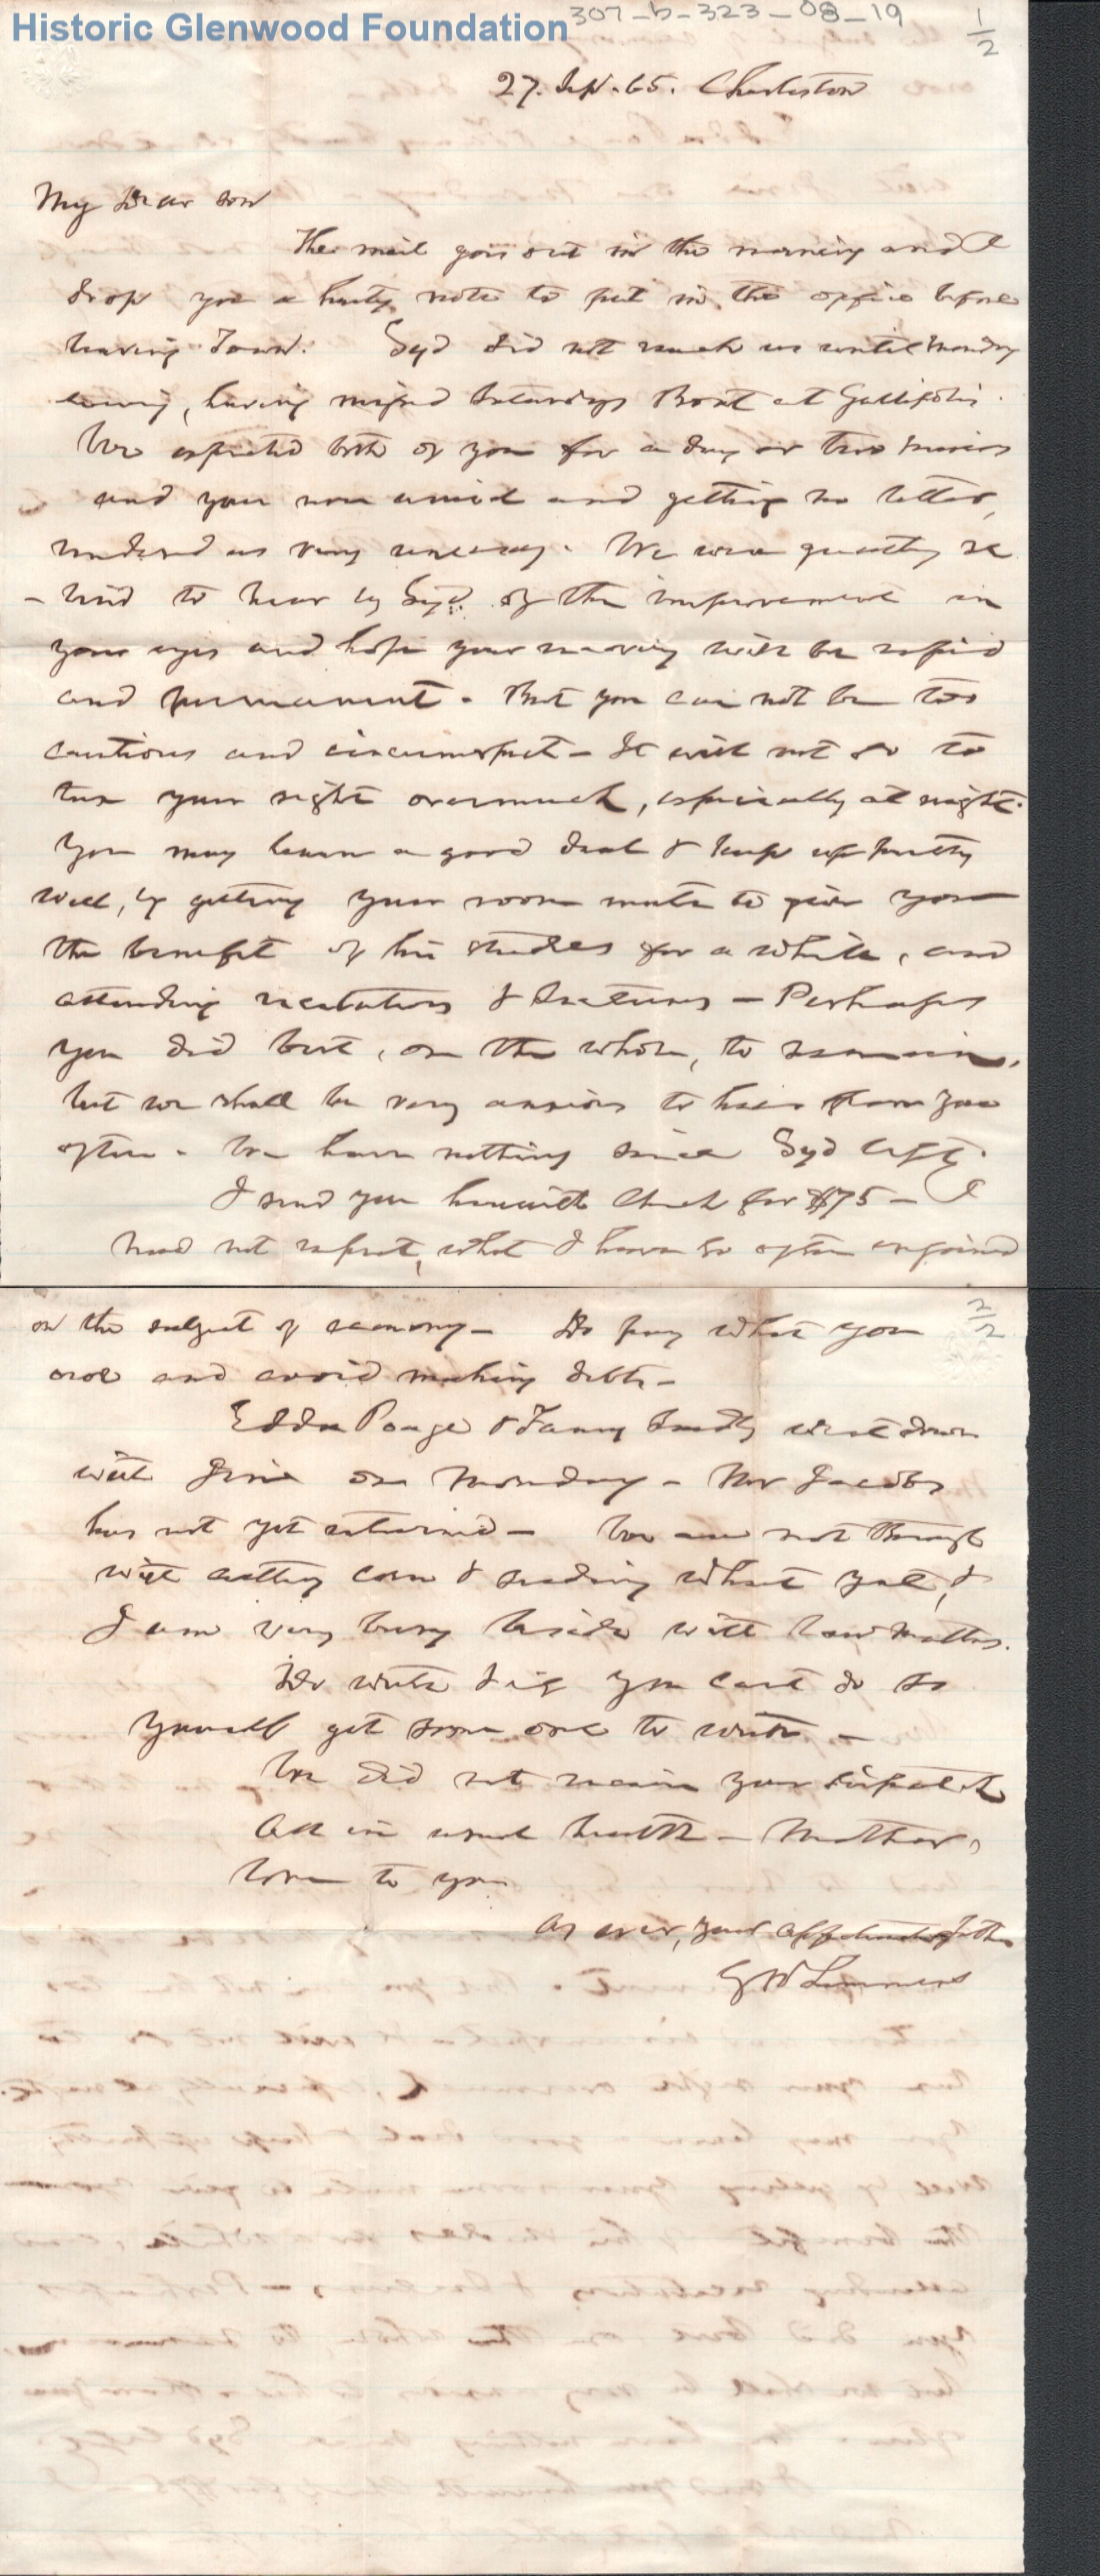 Historic Glenwood Foundation
307-b-323-08-19
1/2
27. Sept. 65. Charleston
My Dear Son
The mail goes out in the morning and I
drop you a hasty note to put in the office before
leaving Town. Syd did not reach us until Monday
evening, having missed Saturdays Boat at Gallipolis.
We expected both of you for a day or two previous
and your non arrival and getting no letter,
rendered us very uneasy. We were greatly re
-lieved to hear by Syd. of the improvement in
your eyes and hope your recovery will be rapid
and permanent. But you can not be too
cautious and circumspect - It will not do to
tax your sight overmuch, especially at night.
You may learn a good deal & keep up pretty
well, by getting your room mate to give you
the benefit of his studies for a while, and
attending recitations & Lectures - Perhaps
you did best, on the whole, to remain,
but we shall be very anxious to hear from you
often. We have nothing since Syd left.
I send you herewith Check for $75 - I
need not repeat, what I have so often enjoined
2/2
on the subject of economy - Do pay what you
owe and avoid making debts -
Edda Pouge & Fanny went down
with on Monday - Mr Jacobs
has not yet returned - We are not through
with cutting corn & seeding wheat yet, &
I am very busy beside with law matters.
Do write & if you cant do so
yourself get some one to write -
We did not receive your dispatch
All in usual health - Mothers,
love to you
As ever, your affectionate Father
G W Summers